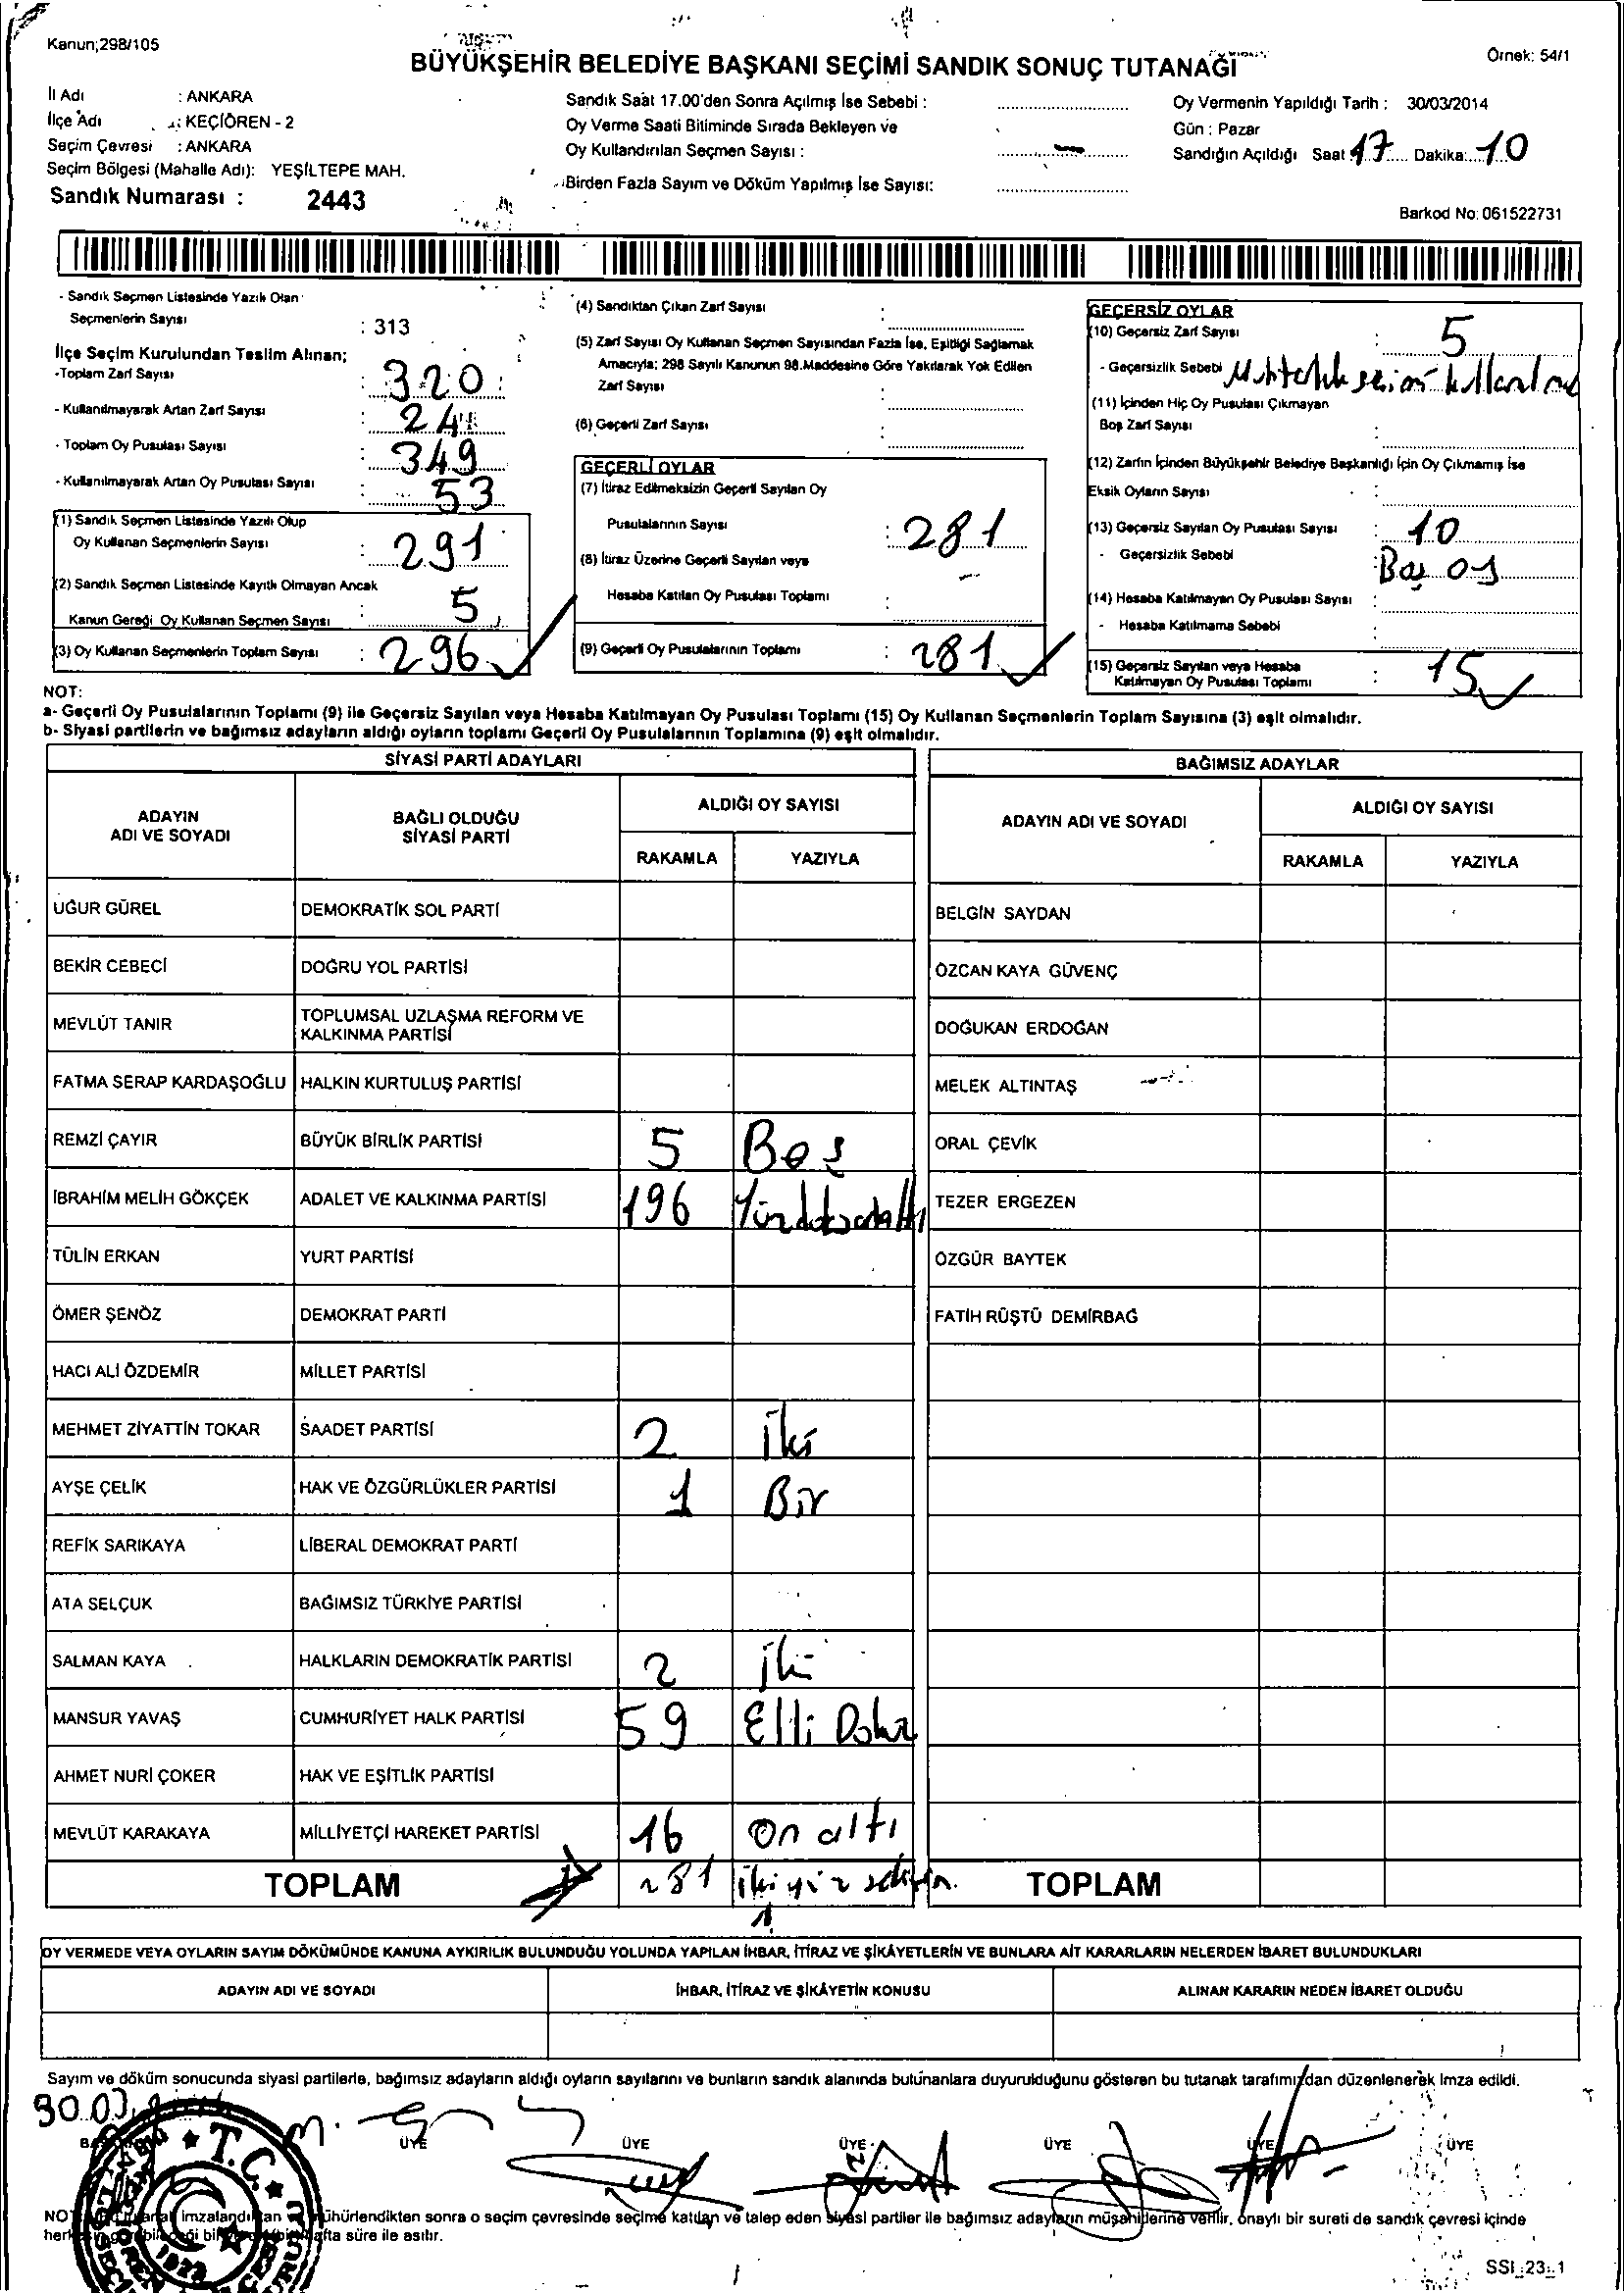 Kanun;298/105
BÜYÜKŞEHİR BELEDİYE BAŞKANI SEÇİMİ SANDIK SONUÇ TUTANAĞI
Örnek: 54/1
İl Adı : ANKARA
İlçe Adı : KEÇİÖREN - 2
Seçim Çevresi : ANKARA
Seçim Bölgesi (Mahalle Adı): YEŞİLTEPE MAH.
Sandık Numarası : 2443
Sandık Saat 17.00'den Sonra Açılmış İse Sebebi :
Oy Verme Saati Bitiminde Sırada Bekleyen ve
Oy Kullandırılan Seçmen Sayısı : -
Birden Fazla Sayım ve Döküm Yapılmış İse Sayısı:
Oy Vermenin Yapıldığı Tarih : 30/03/2014
Gün : Pazar
Sandığın Açıldığı Saat 17 Dakika: 10
Barkod No: 061522731
- Sandık Seçmen Listesinde Yazılı Olan
Seçmenlerin Sayısı : 313
İlçe Seçim Kurulundan Teslim Alınan;
-Toplam Zarf Sayısı : 320
- Kullanılmayarak Artan Zarf Sayısı : 24
- Toplam Oy Pusulası Sayısı : 349
- Kullanılmayarak Artan Oy Pusulası Sayısı : 53
(1) Sandık Seçmen Listesinde Yazılı Olup
Oy Kullanan Seçmenlerin Sayısı : 291
(2) Sandık Seçmen Listesinde Kayıtlı Olmayan Ancak
Kanun Gereği Oy Kullanan Seçmen Sayısı : 5
(3) Oy Kullanan Seçmenlerin Toplam Sayısı : 296
(4) Sandıktan Çıkan Zarf Sayısı :
(5) Zarf Sayısı Oy Kullanan Seçmen Sayısından Fazla İse, Eşitliği Sağlamak
Amacıyla; 298 Sayılı Kanunun 98.Maddesine Göre Yakılarak Yok Edilen
Zarf Sayısı :
(6) Geçerli Zarf Sayısı :
GEÇERLİ OYLAR
(7) İtiraz Edilmeksizin Geçerli Sayılan Oy
Pusulalarının Sayısı : 281
(8) İtiraz Üzerine Geçerli Sayılan veya
Hesaba Katılan Oy Pusulası Toplamı : -
(9) Geçerli Oy Pusulalarının Toplamı : 281
GEÇERSİZ OYLAR
(10) Geçersiz Zarf Sayısı : 5
- Geçersizlik Sebebi Muhtarlık seçimi
(11) İçinden Hiç Oy Pusulası Çıkmayan
Boş Zarf Sayısı :
(12) Zarfın İçinden Büyükşehir Belediye Başkanlığı İçin Oy Çıkmamış İse
Eksik Oyların Sayısı :
(13) Geçersiz Sayılan Oy Pusulası Sayısı : 10
- Geçersizlik Sebebi : Boş oy
(14) Hesaba Katılmayan Oy Pusulası Sayısı :
- Hesaba Katılmama Sebebi :
(15) Geçersiz Sayılan veya Hesaba
Katılmayan Oy Pusulası Toplamı : 15
NOT:
a- Geçerli Oy Pusulalarının Toplamı (9) ile Geçersiz Sayılan veya Hesaba Katılmayan Oy Pusulası Toplamı (15) Oy Kullanan Seçmenlerin Toplam Sayısına (3) eşit olmalıdır.
b- Siyasi partilerin ve bağımsız adayların aldığı oyların toplamı Geçerli Oy Pusulalarının Toplamına (9) eşit olmalıdır.
SİYASİ PARTİ ADAYLARI
ADAYIN ADI VE SOYADI
BAĞLI OLDUĞU SİYASİ PARTİ
ALDIĞI OY SAYISI
RAKAMLA YAZIYLA
UĞUR GÜREL DEMOKRATİK SOL PARTİ
BEKİR CEBECİ DOĞRU YOL PARTİSİ
MEVLÜT TANIR TOPLUMSAL UZLAŞMA REFORM VE KALKINMA PARTİSİ
FATMA SERAP KARDAŞOĞLU HALKIN KURTULUŞ PARTİSİ
REMZİ ÇAYIR BÜYÜK BİRLİK PARTİSİ 5 Beş
İBRAHİM MELİH GÖKÇEK ADALET VE KALKINMA PARTİSİ 196 Yüzdoksanaltı
TÜLİN ERKAN YURT PARTİSİ
ÖMER ŞENÖZ DEMOKRAT PARTİ
HACI ALİ ÖZDEMİR MİLLET PARTİSİ
MEHMET ZİYATTİN TOKAR SAADET PARTİSİ 2 İki
AYŞE ÇELİK HAK VE ÖZGÜRLÜKLER PARTİSİ 1 Bir
REFİK SARIKAYA LİBERAL DEMOKRAT PARTİ
ATA SELÇUK BAĞIMSIZ TÜRKİYE PARTİSİ
SALMAN KAYA HALKLARIN DEMOKRATİK PARTİSİ 2 İki
MANSUR YAVAŞ CUMHURİYET HALK PARTİSİ 59 Elli Dokuz
AHMET NURİ ÇOKER HAK VE EŞİTLİK PARTİSİ
MEVLÜT KARAKAYA MİLLİYETÇİ HAREKET PARTİSİ 16 On altı
TOPLAM 281 İkiyüz seksen
1
BAĞIMSIZ ADAYLAR
ADAYIN ADI VE SOYADI
ALDIĞI OY SAYISI
RAKAMLA YAZIYLA
BELGİN SAYDAN
ÖZCAN KAYA GÜVENÇ
DOĞUKAN ERDOĞAN
MELEK ALTINTAŞ
ORAL ÇEVİK
TEZER ERGEZEN
ÖZGÜR BAYTEK
FATİH RÜŞTÜ DEMİRBAĞ
TOPLAM
OY VERMEDE VEYA OYLARIN SAYIM DÖKÜMÜNDE KANUNA AYKIRILIK BULUNDUĞU YOLUNDA YAPILAN İHBAR, İTİRAZ VE ŞİKÂYETLERİN VE BUNLARA AİT KARARLARIN NELERDEN İBARET BULUNDUKLARI
ADAYIN ADI VE SOYADI
İHBAR, İTİRAZ VE ŞİKÂYETİN KONUSU
ALINAN KARARIN NEDEN İBARET OLDUĞU
Sayım ve döküm sonucunda siyasi partilerle, bağımsız adayların aldığı oyların sayılarını ve bunların sandık alanında bulunanlara duyurulduğunu gösteren bu tutanak tarafımızdan düzenlenerek imza edildi.
30.03
ÜYE ÜYE ÜYE ÜYE ÜYE ÜYE
T.C.
imzalandıktan mühürlendikten sonra o seçim çevresinde seçime katılan ve talep eden siyasi partiler ile bağımsız adayların müşahitlerine verilir, onaylı bir sureti de sandık çevresi içinde
hafta süre ile asılır.
SSI_23_1